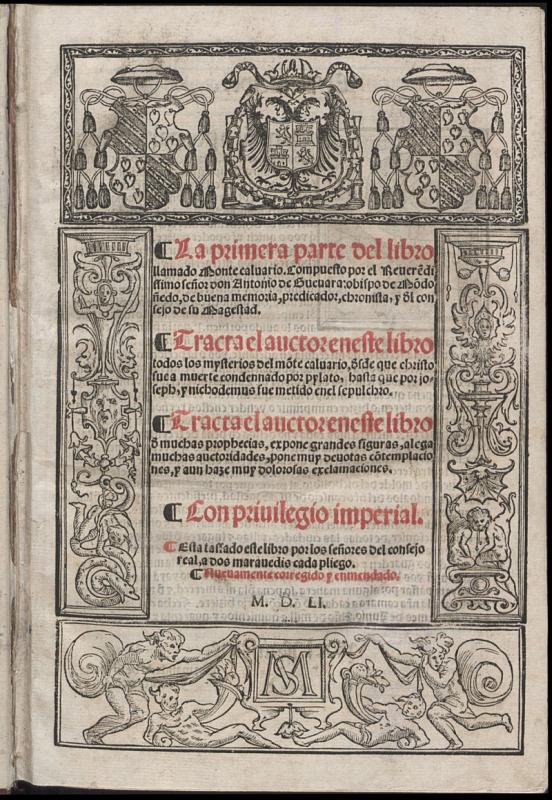 ¶ La primera parte del libro
llamado Monte caluario. Compuesto por el Reuerẽdi
ssimo señor don Antonio de Gueuara: obispo de Mõdo
ñedo, de buena memoria, predicador, chronista, y ðl con
sejo de su Magestad.
¶ Tracta el auctor eneste libro
todos los mysterios del mõte caluario, ðsde que christo
fue a muerte condennado por pylato, hasta que por jo-
seph, y nichodemus fue metido enel sepulchro.
¶ Tracta el auctor eneste libro
ð muchas prophecias, expone grandes figuras, alega
muchas auctoridades, pone muy deuotas cõtemplacio
nes, y aun haze muy dolorosas exclamaciones.
¶ Con priuilegio imperial.
¶ Esta tassado este libro por los señores del consejo
real, a dos marauedis cada pliego.
¶ Nueuamente corregido y enmendado.
M. D. LI.